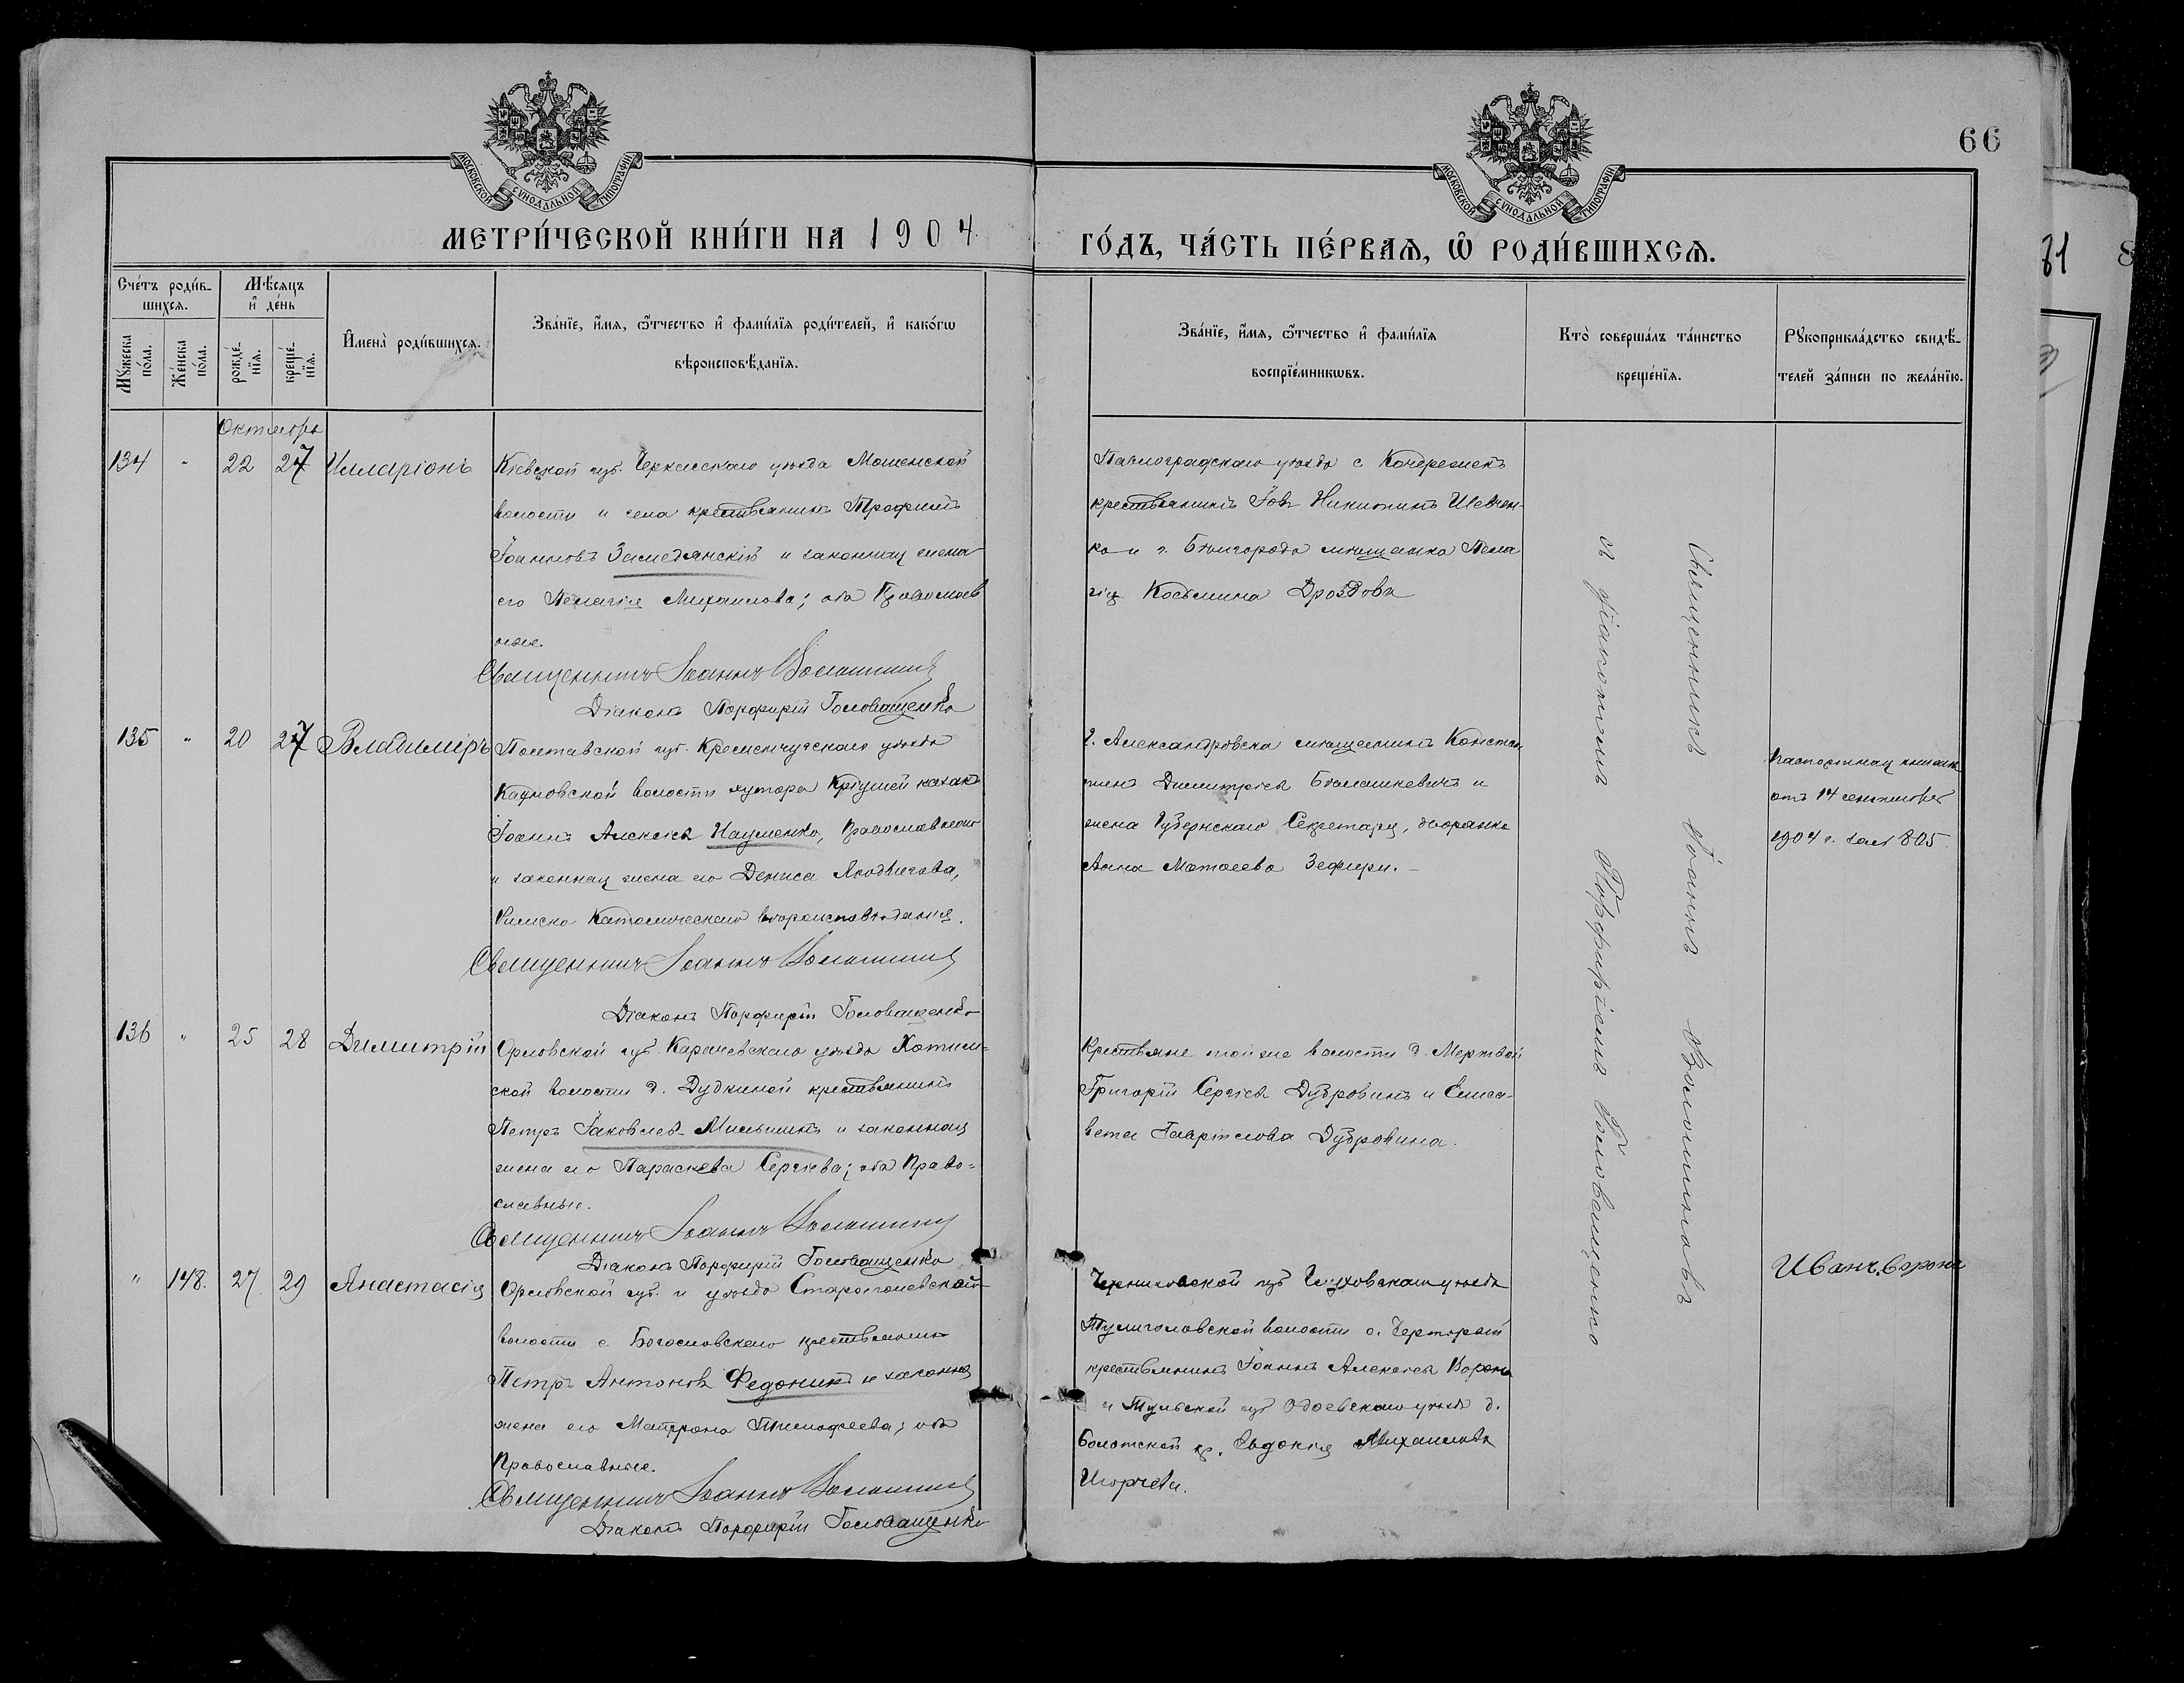 МОСКОВСКОЙ СѴНОДАЛЬНОЙ ТИПОГРАФІИ
МОСКОВСКОЙ СѴНОДАЛЬНОЙ ТИПОГРАФІИ
66
81
МЕТРИ́ЧЕСКОЙ КНИ́ГИ НА 1904
ГО́ДЪ, ЧА́СТЬ ПЕ́РВАѦ, Ѡ҆ РОДИ́ВШИХСѦ.
Сче́тъ роди́в-
шихсѧ.
Мѣ́сѧцъ
и҆ де́нь
Мꙋ́жеска
по́ла.
Же́нска
по́ла.
рожде́-
нїѧ.
креще́-
нїѧ.
И҆мена̀ роди́вшихсѧ.
Зва́нїе, и҆́мѧ, ѻ҆́тчество и҆ фами́лїѧ роди́телей, и҆ како́гѡ
вѣроисповѣ́данїѧ.
Зва́нїе, и҆́мѧ, ѻ҆́тчество и҆ фами́лїѧ
воспрїе́мникѡвъ.
Кто̀ соверша́лъ та́инство
креще́нїѧ.
Рꙋкоприкла́дство свидѣ́-
телей за́писи по жела́нїю.
Октябрь
134 " 22 27 Илларіонъ
Кіевской губ. Черкасскаго уѣзда Мошенской
волости и села крестьянинъ Трофимъ
Іоанновъ Замедянскій и законная жена
его Пелагія Михаилова; оба Православ
ные.
Священникъ Іоаннъ Волошиновъ
Діаконъ Порфирій Головащенко
Павлоградскаго уѣзда с. Кочережекъ
крестьянинъ Іовъ Никитинъ Шевчен-
ко и г. Бѣлгорода мѣщанка Пела
гія Косьмина Дроздова
135 " 20 27 Владиміръ
Полтавской губ. Кременчугскаго уѣзда
волости хутора казакъ
Іоаннъ Алексѣевъ Науменко, Православнаго
и законная жена его Дениса
Римско Католическаго вѣроисповѣданія.
Священникъ Іоаннъ Волошиновъ
Діаконъ Порфирій Головащенко
г. Александровска мѣщанинъ Констан
тинъ Димитріевъ Бѣлашкевичъ и
жена Губернскаго Секретаря, дворянка
Анна Матѳеева Зефири. –
Паспортная книжка
отъ 14 сентября
1904 г. за № 805.
136 " 25 28 Димитрій
Орловской губ. Карачевскаго уѣзда Хотим-
ской волости д. Дудкиной крестьянинъ
Петръ Іаковлевъ Мишинъ и законная
жена его Параскева Сергѣева; оба Право-
славные.
Священникъ Іоаннъ Волошиновъ
Діаконъ Порфирій Головащенко
Крестьяне той же волости д. Мертвой
Григорій Сергіевъ Дубровинъ и Елиса-
вета Гавріилова Дубровина.
" 148. 27. 29 Анастасія
Орловской губ. и уѣзда Староголевской
волости с. Богословскаго крестьянинъ
Петръ Антоновъ Федонинъ и законная
жена его Матрона Тимофеева; оба
Православные.
Священникъ Іоаннъ Волошиновъ
Діаконъ Порфирій Головащенко
Черниговской губ. Глуховскаго уѣзда
Тулиголовской волости с. Чорторыи
крестьянинъ Іоаннъ Алексѣевъ Ворона
и Тульской губ. Одоевскаго уѣзда д.
Болотской кр. Евдокія Михаилова
Игорчева.
Иванъ Ворона
Священникъ Іоаннъ Волошиновъ
съ діакономъ Порфиріемъ Головащенко